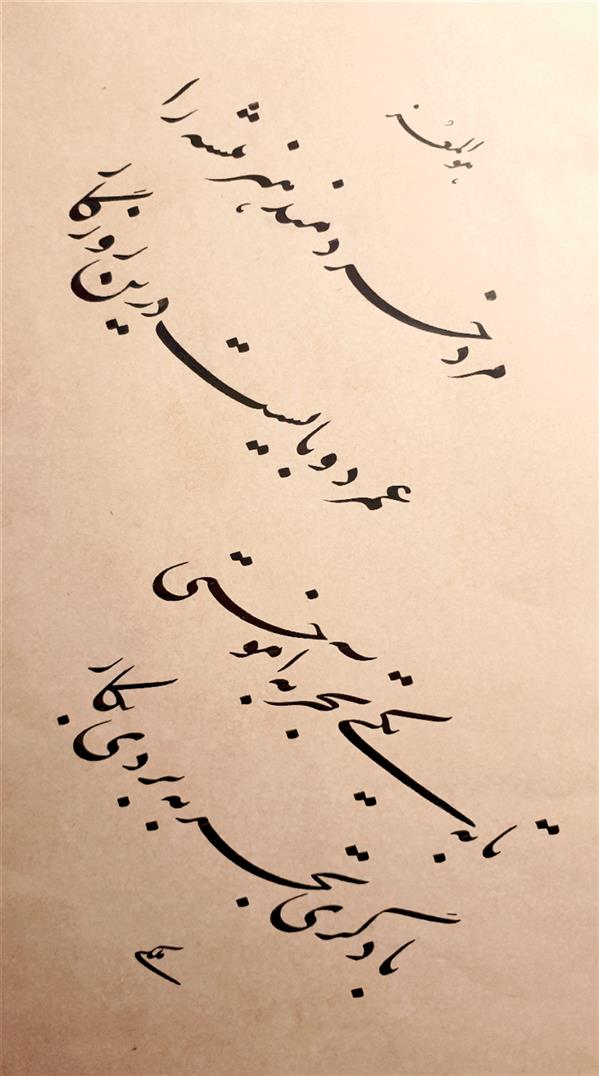 هوالمعز
مرد خردمند هنر پیشه را
عمر دو بایست درین روزگار
تا به یکی تجربه آموختی
با دگری تجربه بردی بکار